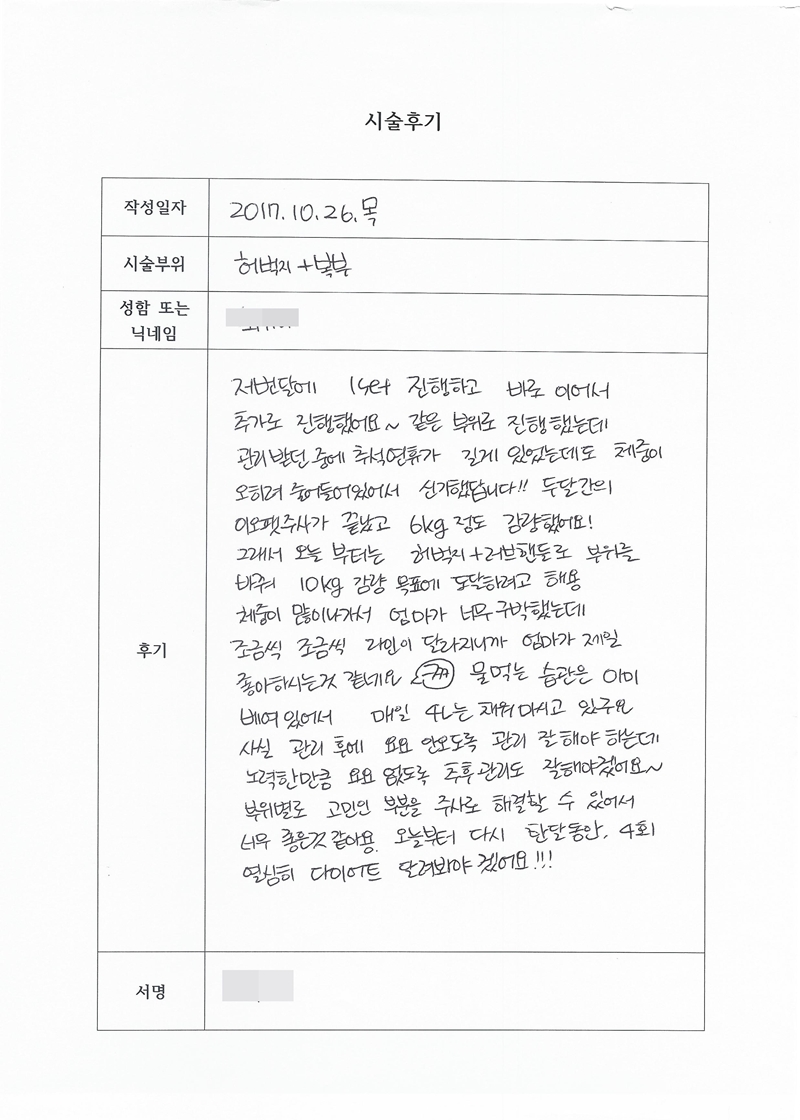 시술후기
작성일자 2017.10.26.목
시술부위 허벅지+복부
성함 또는
닉네임
후기
저번달에 1set 진행하고 바로 이어서
추가로 진행했어요~ 같은 부위로 진행했는데
관리받던 중에 추석연휴가 길게 있었는데도 체중이
오히려 줄어들어있어서 신기했답니다!! 두달간의
이오팻주사가 끝났고 6kg 정도 감량했어요!
그래서 오늘 부터는 허벅지+러브핸들로 부위를
바꿔 10kg 감량 목표에 도달하려고 해용
체중이 많이나가서 엄마가 너무 구박했는데
조금씩 조금씩 라인이 달라지니까 엄마가 제일
좋아하시는것 같네요 ㅋㅋ 물먹는 습관은 이미
베여있어서 매일 4L는 채워마시고 있구요
사실 관리 후에 요요 안오도록 관리 잘해야 하는데
노력한만큼 요요 없도록 추후관리도 잘해야겠어요~
부위별로 고민인 부분을 주사로 해결할 수 있어서
너무 좋은것 같아용 오늘부터 다시 한달동안, 4회
열심히 다이어트 달려봐야겠어요!!!
서명